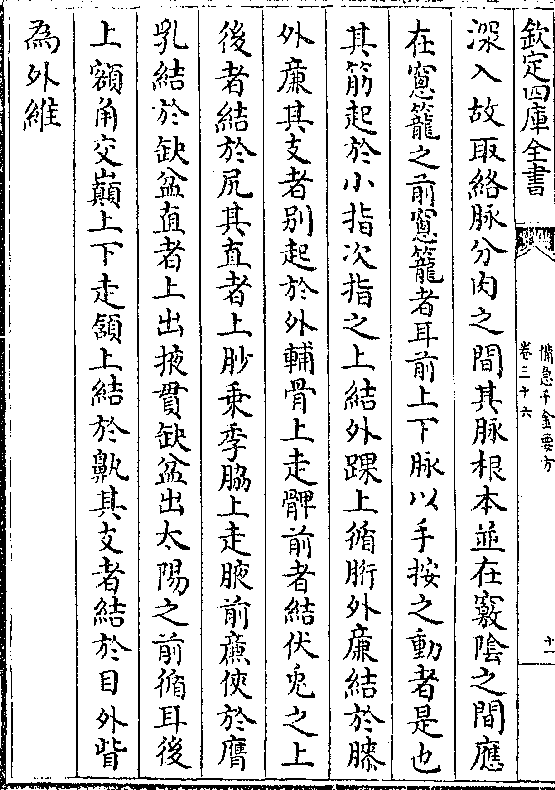 欽定四庫全書
備急千金要方
卷三十六
十一
深入故取絡脉分肉之間其脉根本並在竅陰之間應
在窻籠之前窻籠者耳前上下脉以手按之動者是也
其筋起於小指次指之上結外踝上循胻外廉結於膝
外廉其支者别起於外輔骨上走髀前者結伏兎之上
後者結於尻其直者上䏚乗季脇上走腋前廉俠於膺
乳結於缺盆直者上出掖貫缺盆出太陽之前循耳後
上額角交巔上下走頷上結於鼽其支者結於目外眥
為外維